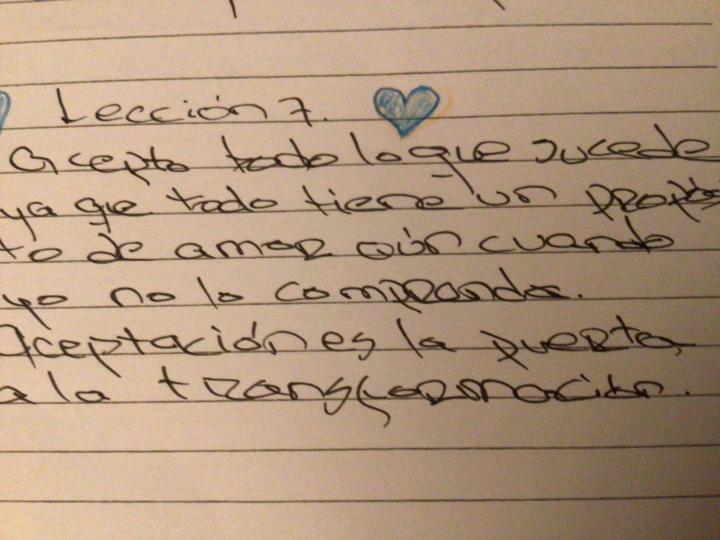 Lección 7.
Acepto todo lo que sucede
ya que todo tiene un propósi
to de amor aún cuando
yo no lo comprenda.
Aceptación es la puerta
a la transformación.